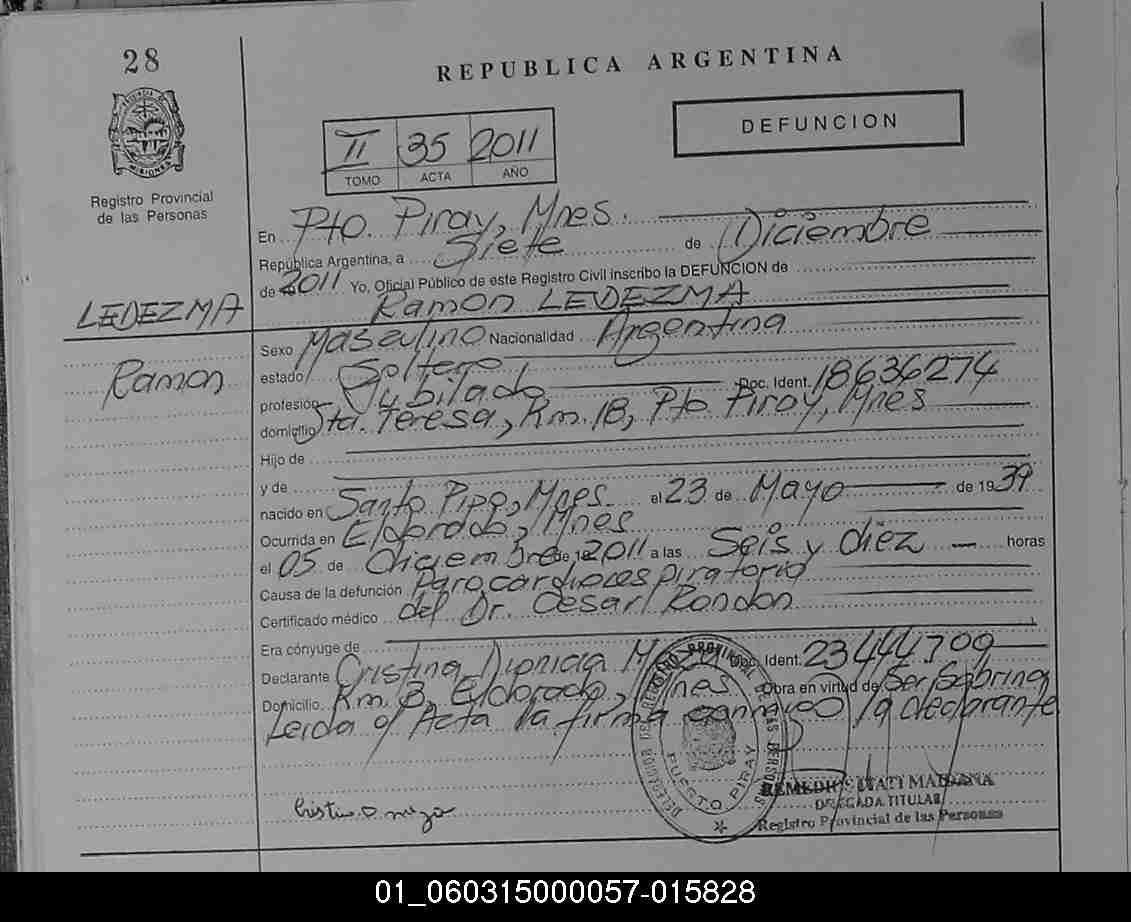 28
REPUBLICA ARGENTINA
DEFUNCION
II 35 2011
TOMO ACTA AÑO
PROVINCIA DE MISIONES
Registro Provincial
de las Personas
En Pto. Piray, Mnes.
República Argentina, a Siete de Diciembre
de 2011 Yo, Oficial Público de este Registro Civil inscribo la DEFUNCION de
LEDEZMA Ramon LEDEZMA
Ramon
Sexo Masculino Nacionalidad Argentina
estado Soltero
profesión Jubilado Doc. Ident. 18636274
domicilio Sta. Teresa, Km. 18, Pto Piray, Mnes
Hijo de
y de
nacido en Santo Pipo, Mnes el 23 de Mayo de 1939
Ocurrida en Eldorado, Mnes
el 05 de Diciembre de 2011 a las Seis y diez horas
Causa de la defunción Parocardiorespiratorio
Certificado médico del Dr. Cesar Rondon
Era cónyuge de
Declarante Cristina Dionicia Doc. Ident. 23444709
Domicilio Km. 3, Eldorado, Mnes Obra en virtud de Ser Sobrina
Leida el Acta la firma conmigo la declarante
DELEGACION DEL REGISTRO PROVINCIAL DE LAS PERSONAS
PUERTO PIRAY
REMEDIOS ITATI MAIDANA
DELEGADA TITULAR
Registro Provincial de las Personas
01_060315000057-015828